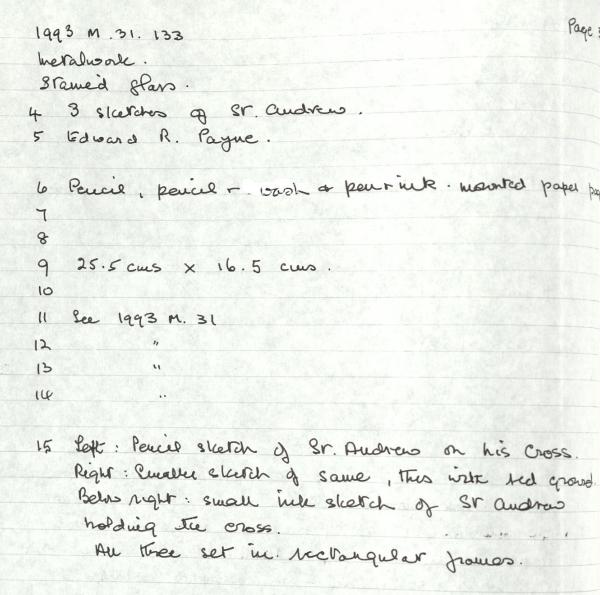 1993 M. 31. 133
Page
Metalwork.
Stained glass.
4 3 sketches of St. Andrew.
5 Edward R. Payne.
6 Pencil, pencil + wash & pen + ink. mounted paper
7
8
9 25.5 cms x 16.5 cms.
10
11 See 1993 M. 31
12 "
13 "
14 "
15 Left: Pencil sketch of St. Andrew on his Cross.
Right: Smaller sketch of same, this with red ground
Below right: small ink sketch of St Andrew
holding the cross.
All three set in rectangular frames.